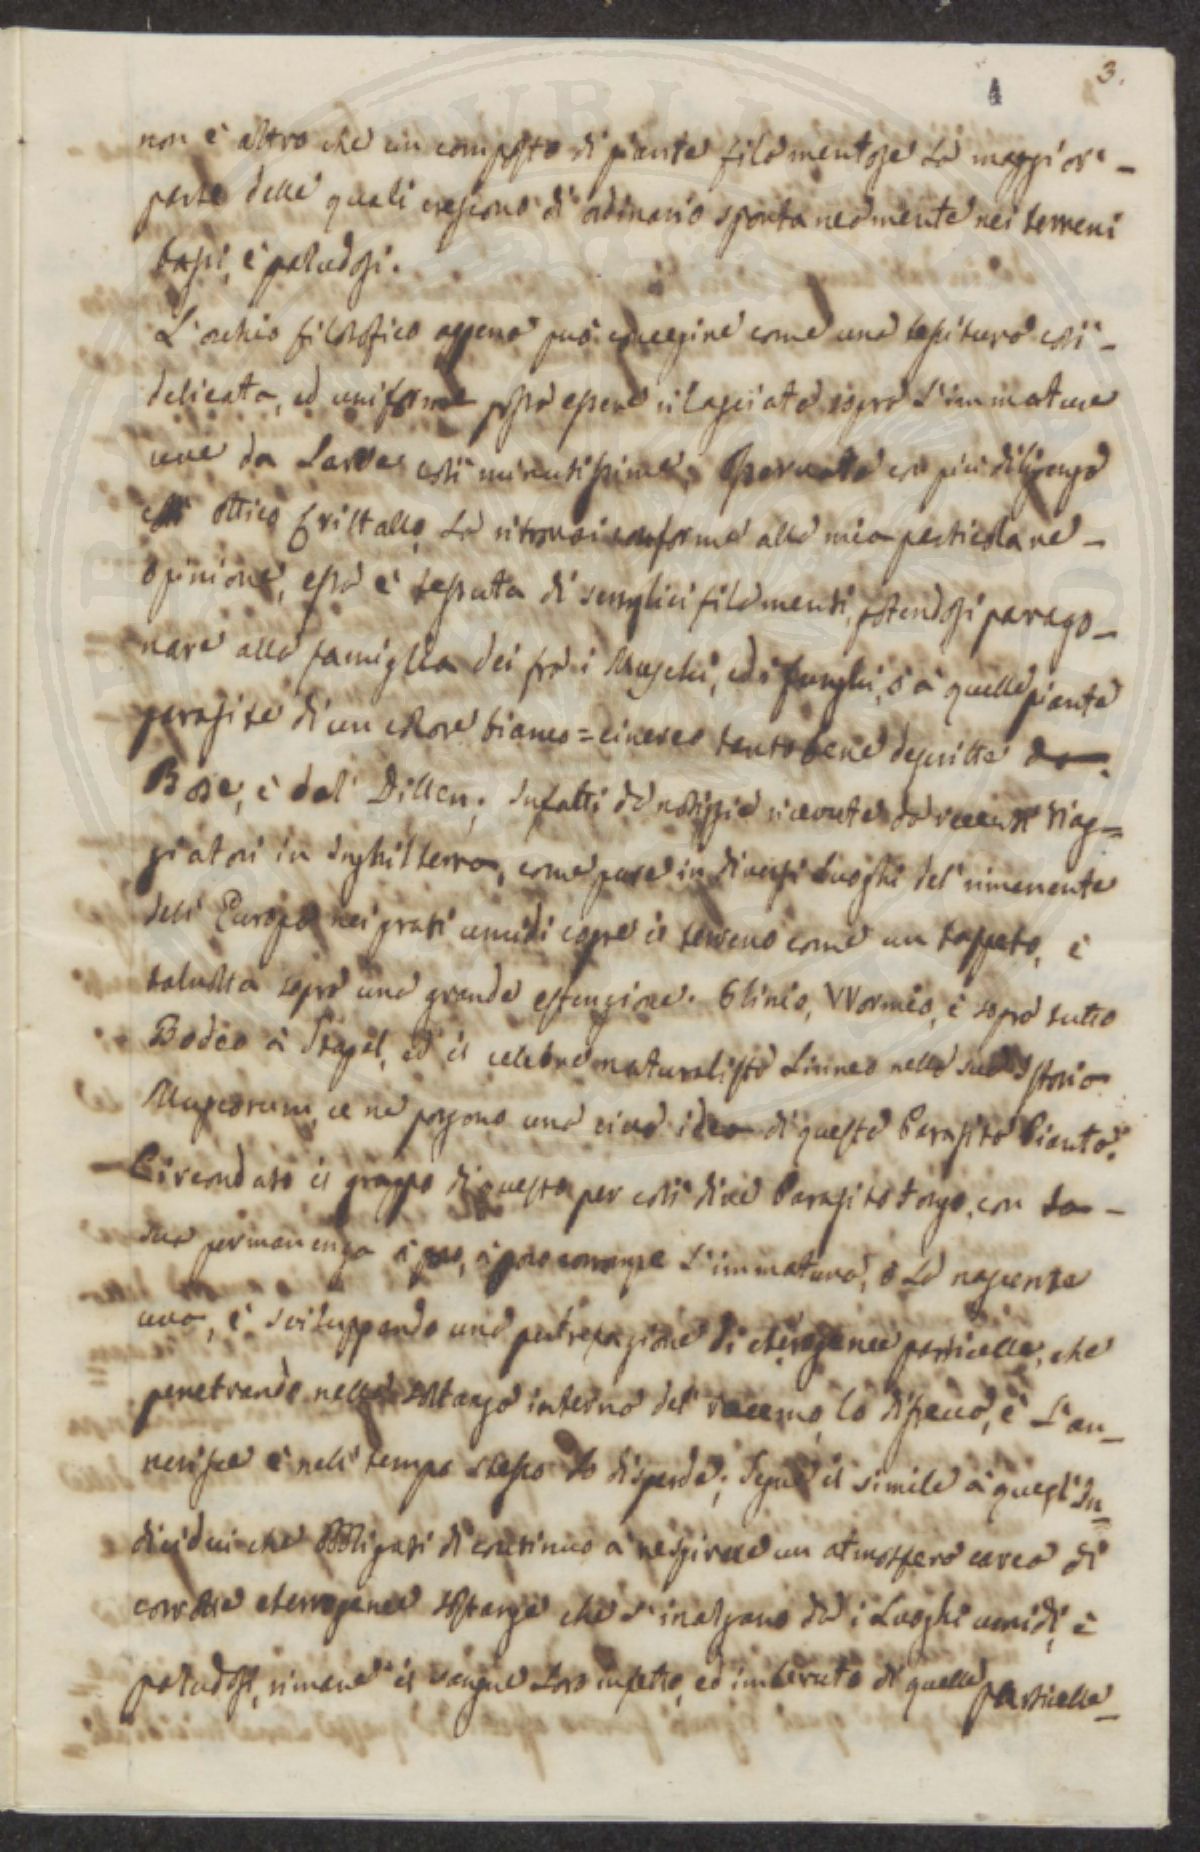 3.
4
non è altro che un composto di piante filamentose la maggior-
parte delle quali crescono di ordinario spontaneamente nei terreni
bassi, e paludosi.
L'occhio filosofico appena può concepire come una tessitura così-
delicata, ed uniforme possa essere rilasciata sopra l'immature
uve da Larve così minutissime; Osservata con più diligenza
coll' ottico Cristallo, la ritrovai conforme alla mia particolare-
opinione, essa è tessuta di semplici filamenti, potendosi parago-
nare alla famiglia dei fra i Muschi, ed i funghi, ò a quelle piante
parasite di un colore bianco=cinereo tanto bene descritte da
Bose, e dal Dillen; Infatti da notizzie ricevute da recenti viag=
giatori in Inghilterra, come pure in diversi Luoghi del rimanente
dell' Europa nei prati umidi copre il terreno come un tappeto, e
talvolta sopra una grande estenzione. Plinio, Wormio, e sopra tutto
Bodeo à Stapel, ed il celebre naturalista Linneo nella sua Istoria
Muscorum, ce ne porgono una viva idea di questa Parasita Pianta.
Circondato il grappo di questo per così dire Parasito fongo, con la
sua permanenza à poco, à poco corrompe l'immatura, ò la nascente
uva, e sviluppando una putrefazione di eterogenee particelle, che
penetrando nella sostanza interna del racemo, lo dissecca, e l'an-
nerisce e nell' tempo stesso lo disperde; Segue il simile à quegl' In-
dividui che obbligati di continuo à respirare un atmosfera carca di
corrotte eterrogenee sostanze che s'inalzano da i Luoghi umidi, e
paludosi, rimane il sangue loro infetto, ed imbevuto di quelle particelle-